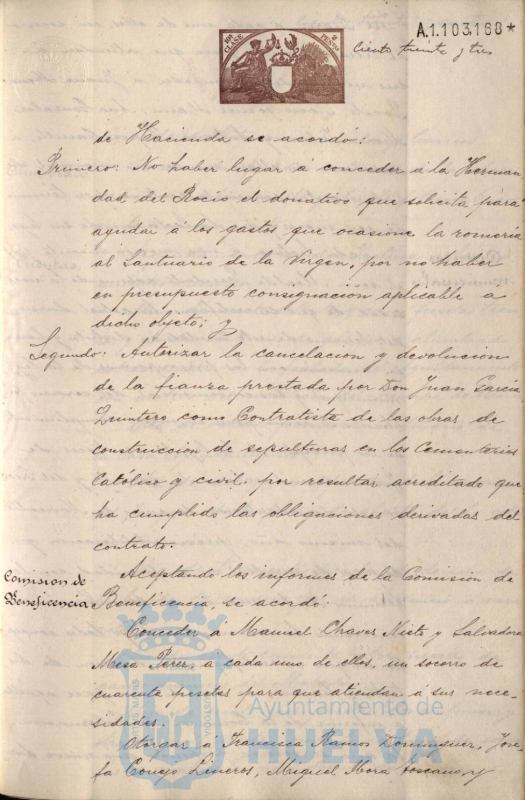 A.1.103,168*
Ciento treinta y tres
de Hacienda se acordó:
Primero: No haber lugar á conceder á la Herman
dad del Rocio el donativo que solicita para
ayudar á los gastos que ocasione la romeria
al Santuario de la Virgen, por no haber
en presupuesto consignacion aplicable á
dicho objeto; y
Segundo: Autorizar la cancelacion y devolucion
de la fianza prestada por Don Juan Garcia
Quintero como Contratista de las obras de
construccion de sepulturas en los Cementerios
Católico y civil. por resultar acreditado que
ha cumplido las obligaciones derivadas del
contrato.
Comision de
Beneficencia
Aceptando los informes de la Comisión de
Beneficencia, se acordó:
Conceder á Manuel Chaves Nieto y Salvadora
Mesa Perez, a cada uno de ellos, un socorro de
cuarenta pesetas para que atiendan á sus nece-
sidades.
Otorgar á Francisca Ramos Dominguez, Jose-
fa Conejo Lineros, Miguel Mora Toscano, y
Ayuntamiento de
HUELVA